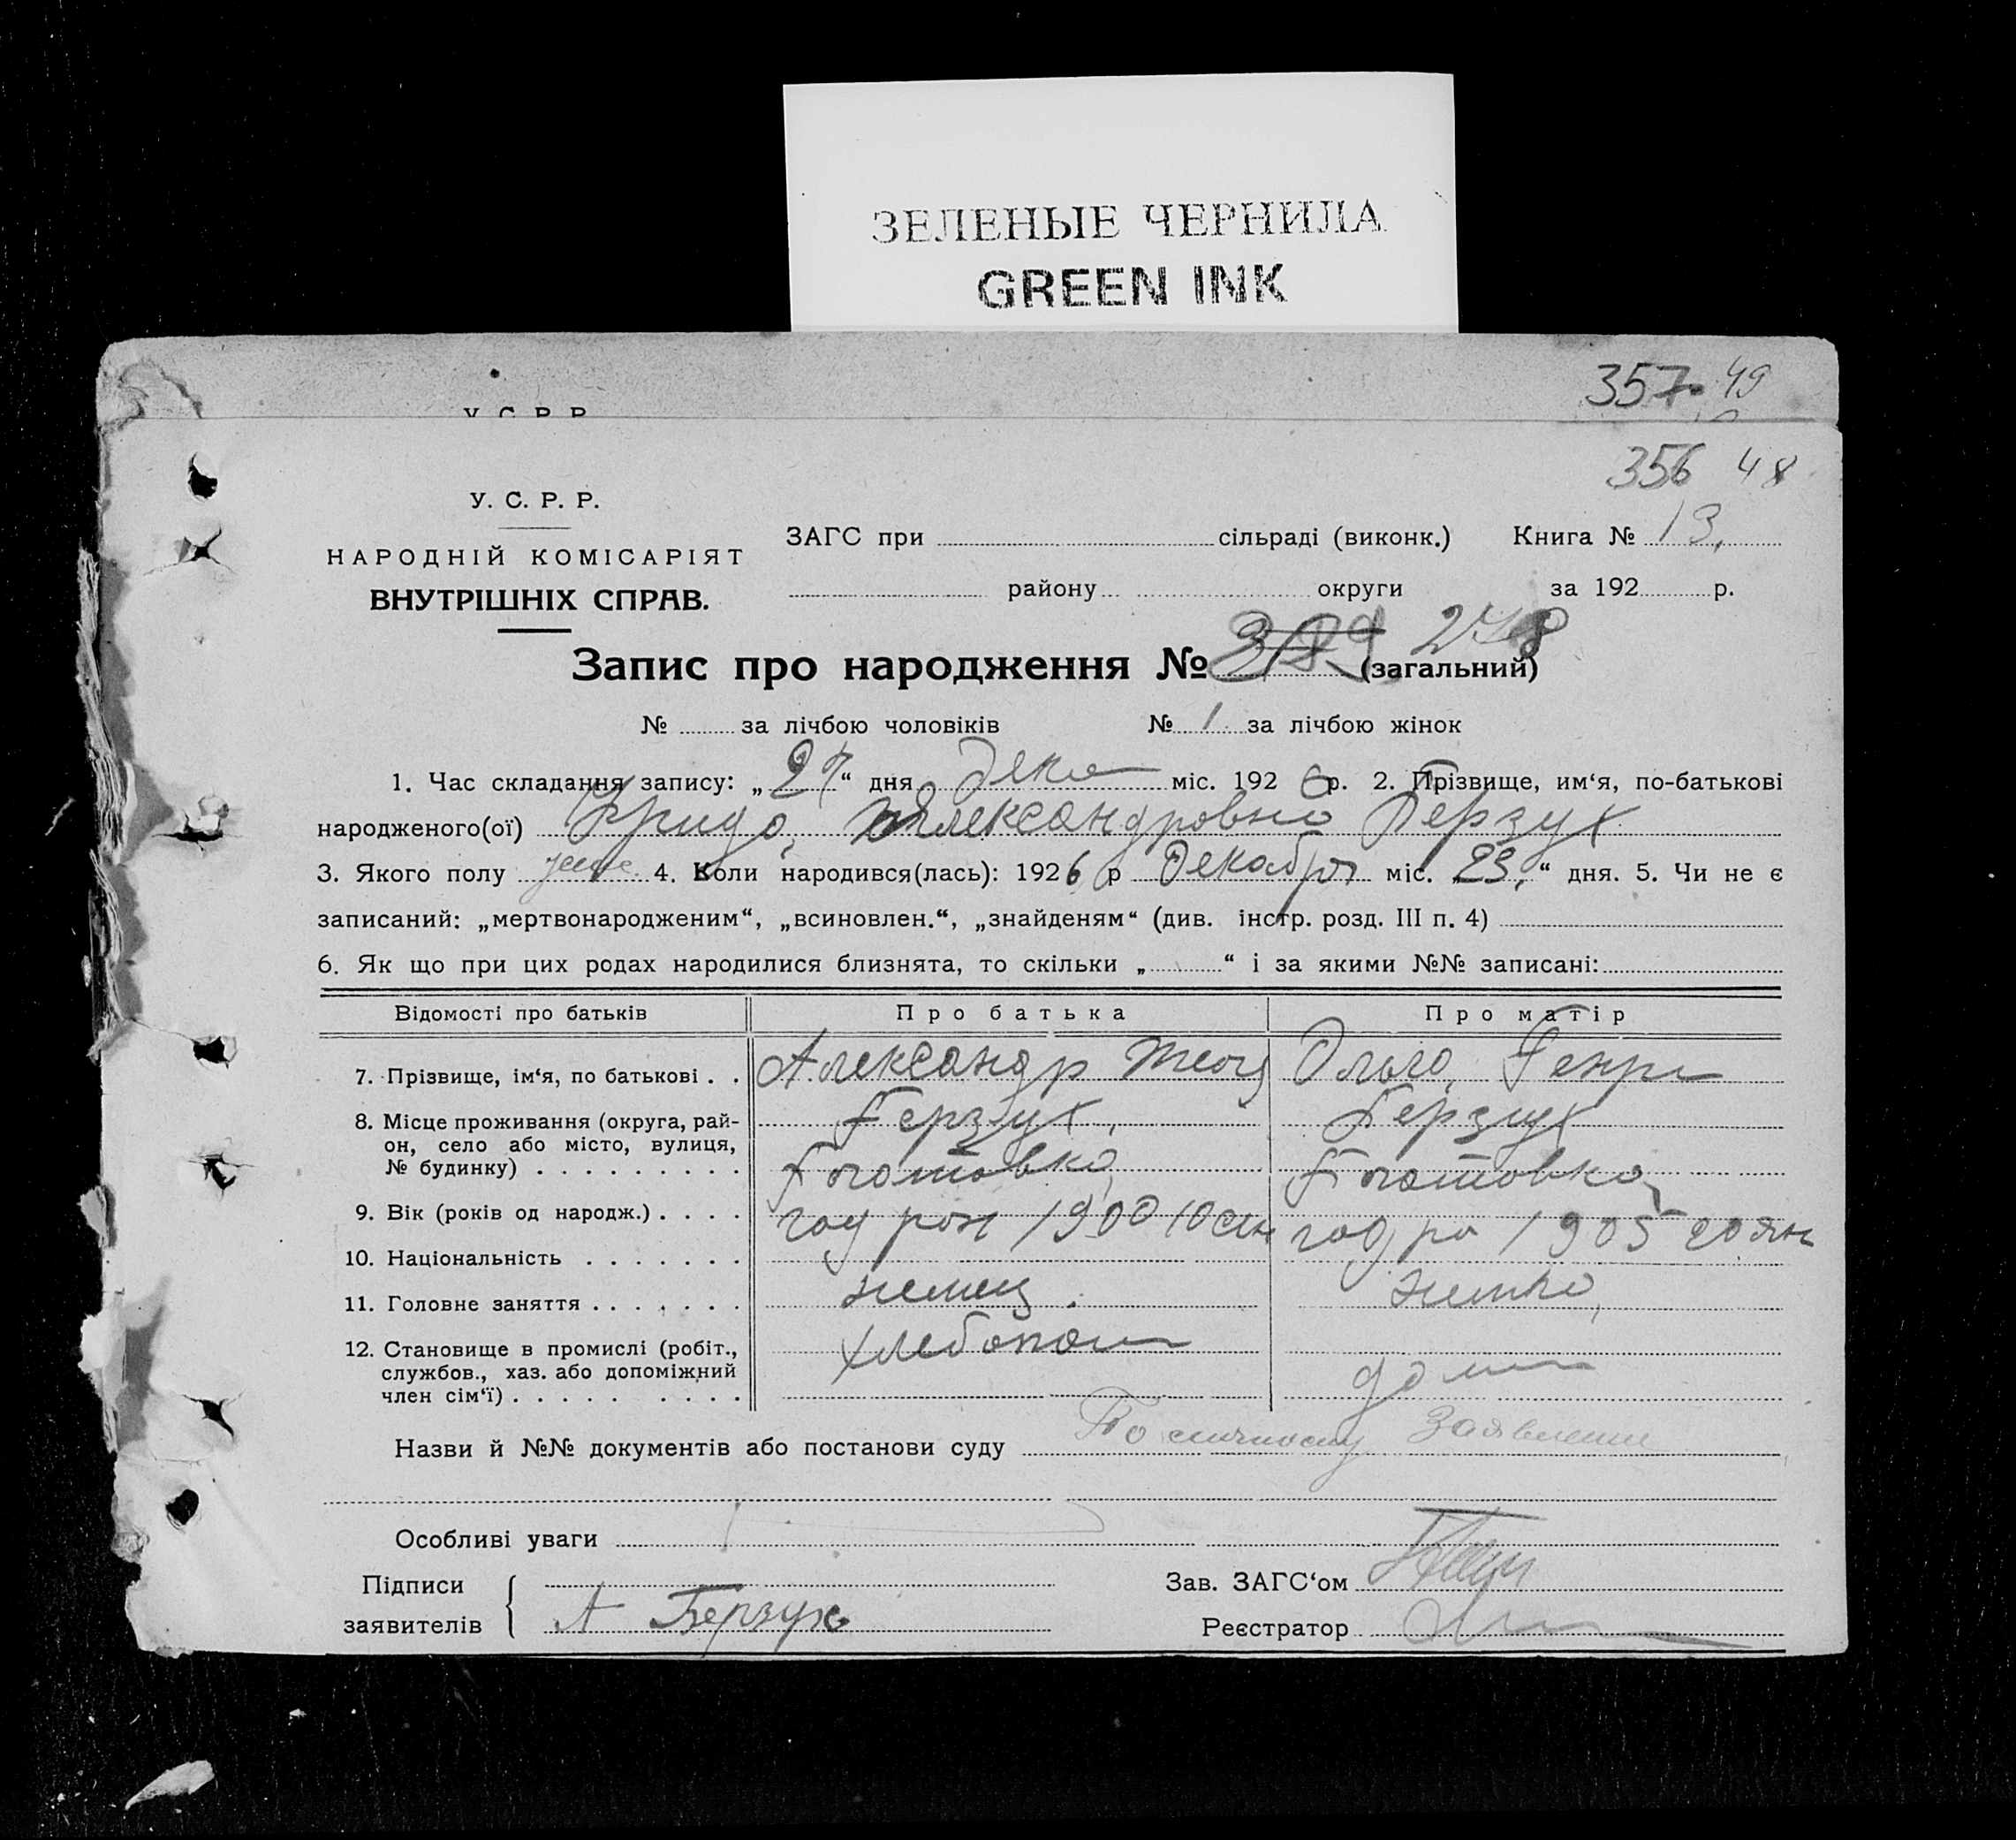 ЗЕЛЕНЫЕ ЧЕРНИЛА
GREEN INK
357 49
У. С. Р. Р.
356 48
У. С. Р. Р.
НАРОДНІЙ КОМІСАРІЯТ
ВНУТРІШНІХ СПРАВ.
ЗАГС при сільраді (виконк.) Книга № 13.
району округи за 192 р.
Запис про народження № 248 (загальний)
№ за лічбою чоловіків № 1 за лічбою жінок
1. Час складання запису: „27“ дня Дека міс. 1926р. 2. Прізвище, им‘я, по-батькові
народженого(ої) Фрида, Александровна Герзух
3. Якого полу жен 4. Коли народився(лась): 1926 р Декабря міс. „23,“ дня. 5. Чи не є
записаний: „мертвонародженим“, „всиновлен.“, „знайденям“ (див. інстр. розд. III п. 4)
6. Як що при цих родах народилися близнята, то скільки „ “ і за якими №№ записані:
Відомості про батьків Про батька Про матір
7. Прізвище, ім‘я, по батькові . . Александр Ольга, Генри
8. Місце проживання (округа, рай- Герзух, Герзух
он, село або місто, вулиця,
№ будинку) . . . . . . . . .
9. Вік (років од народж.) . . . . год рож 1900 10 год ро 1905 20 янв
10. Національність . . . . . . .
11. Головне заняття . . . . . . . немец. немка,
12. Становище в промислі (робіт., хлебопаш
службов., хаз. або допоміжний дом
член сім‘ї) . . . . . . . . . .
Назви й №№ документів або постанови суду По личному Заявлению
Особливі уваги
Підписи Зав. ЗАГС‘ом
заявителів А Герзух Реєстратор